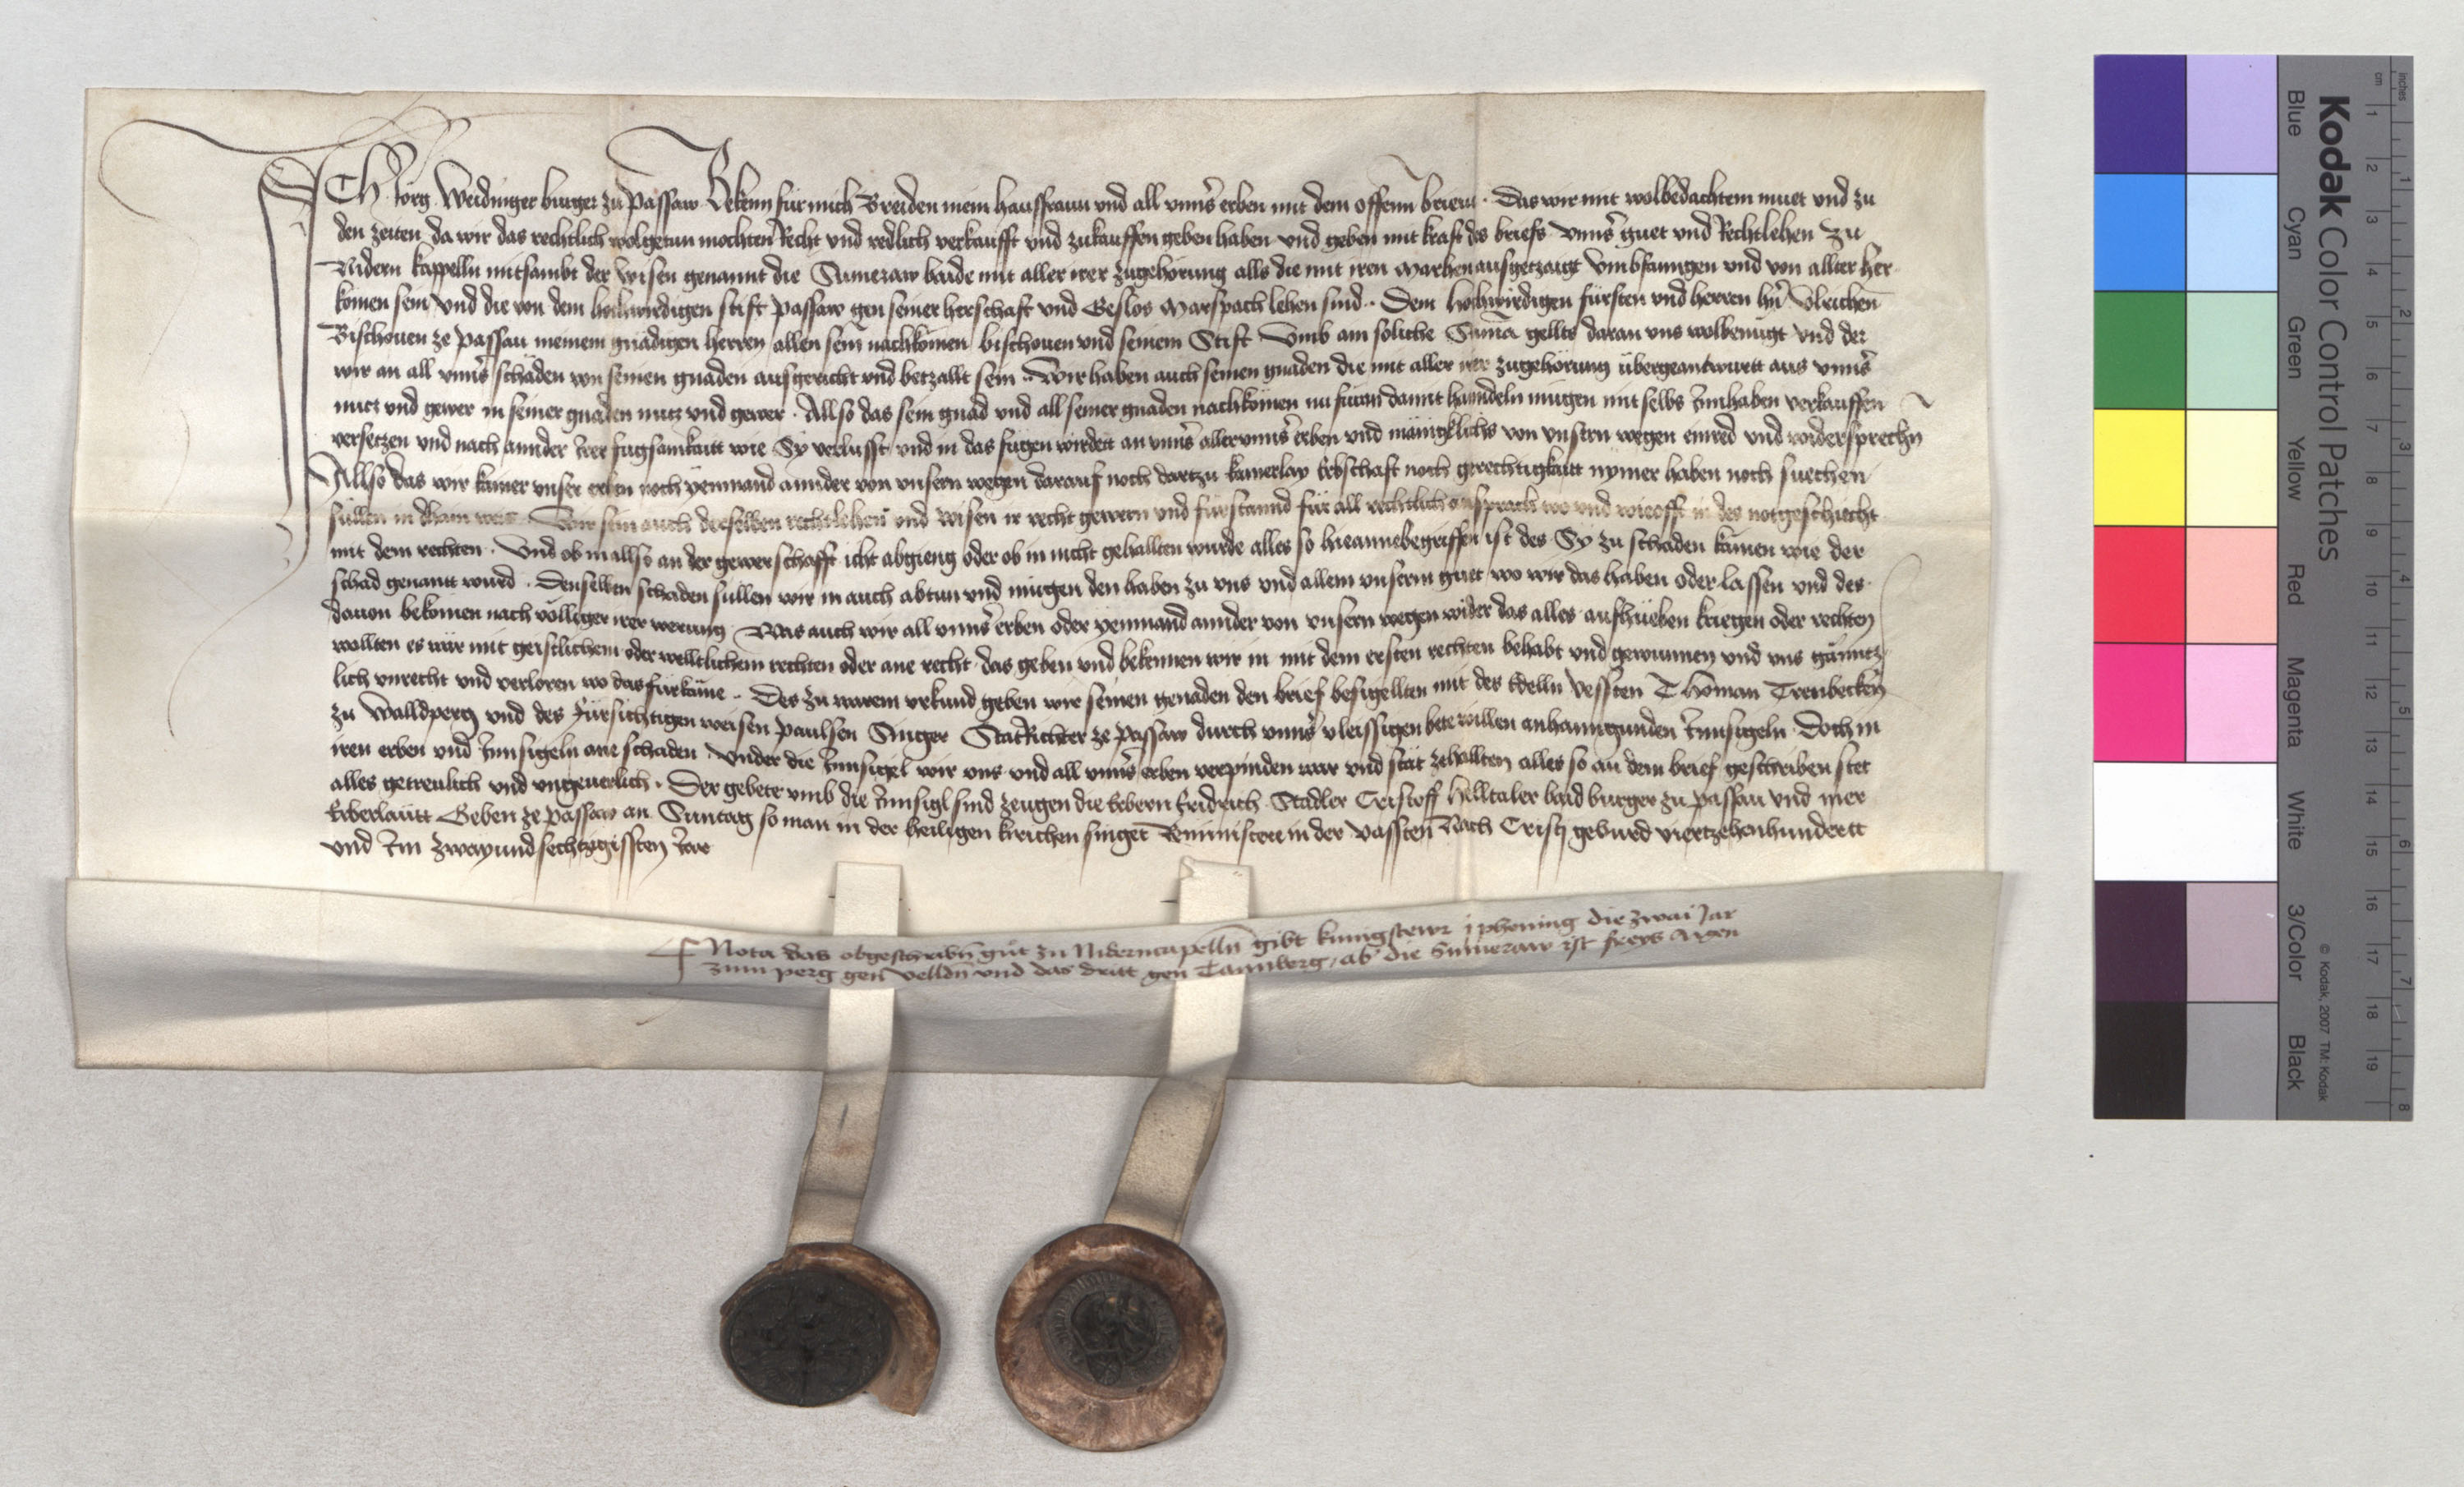 ICh Jörg Weidinger burger zu Passaw Bekenn für mich Breiden mein hausfraun und all unns̄ erben mit dem offenn brieue · Das wir mit wolbedachtem muet und zu
den zeiten da wir das rechtlich wolgetun mochten Recht und redlich verkaufft und zukauffen geben haben und geben mit kraft des briefs unns̄ guet und Rechtlehen zu
Nidern kappelln mitsambt der Wisen genannt die Sumeraw baide mit aller irer zugehörung alls die mit iren marhen ausgetzaigt umbfanngen und von allter her
komen sein und die von dem hochwirdigen stift passaw gen seiner herschaft und Geslos Marspach lehen sind · Dem hochwirdigen fürsten und herren hn̄ Vlrichen
Bischouen ze passau meinem gnädigen herren allen sein nachkomen bischouen und seinem Stift Vmb ain soliche Sum̄a gellts daran uns wolbenügt und der
wir an all unns̄ schäden von seinen gnaden ausgericht und betzallt sein · Wir haben auch seinen gnaden die mit aller irer zugehörung übergeantwurtt aus unns̄
nutz und gewer in seiner gnaden nutz und gewer · Allso das sein gnad und all seiner gnaden nachkomen nu füran damit hanndeln mügen mit selbs Innhaben verkauffen
versetzen und nach annder Irer fugsamkait wie Sy verlusst und in das fügen wirdett an unns̄ aller unns̄ erben und mänigklichs von unsern wegen einred und widersprechn̄
Allso das wir kainer unser erben noch yemmand annder von unsern wegen darauf noch dartzu kainerlay Erbschaft noch gerechtigkaitt nymer haben noch suechen
süllen in dhain weis · Wir sein auch derselben rechtlehen und wisen ir recht gewern und fürstannd für all rechtlich ansprach wo und wieofft in des notgeschiecht
mit dem rechten · Und ob in allso an der gewerschafft icht abgieng oder ob in nicht gehallten wurde alles so hieanne begriffen ist des Sy zu schaden kämen wie der
schad genantt wurd · Denselben schaden süllen wir in auch abtun und mügen den haben zu uns und allem unserm guet wo wir das haben oder lassen und des
dauon bekomen nach völliger irer werung · Was auch wir all unns̄ erben oder yemmand annder von unsern wegen wider das alles aufhüeben kriegen oder rechten
wollten es wär mit geistlichem oder welltlichem rechten oder ane recht das geben und bekennen wir in mit dem ersten rechten behabt und gewunnen und uns gänntz
lich unrecht und verloren wo das fürkäme · Des zu warem urkund geben wir seinen genaden den brief besigellten mit des Edelln Vessten Thoman Trenbecken
zu Walldperg und des Fürsichtigen weisen paulsen Singer StatRichter ze passaw durch unns̄ vleissigen bete willen anhanngunden Innsigeln Doch in
iren erben und Innsigeln ane schaden · Under die Innsigel wir uns und all unns̄ erben verpinden war und stät zehallten alles so an dem brief geschriben stet
alles getreulich und ungeuerlich · Der gebete umb die Innsigl sind zeugen die Erbern Fridreich Stadler Cristoff Helltaler baid burger zu passau und mer
Erberläutt Geben ze passaw an Sunntag so man in der heiligen kirichen singet Reminiscere in der Vassten Nach Cristi geburd viertzehenhundertt
und Im zwayundsechtzigissten Jare
Nota das obgeschribn̄ gůt zu Niderncapelln̄ gibt kunigstewr j phening die zwai Jar
zum perg gen velldn̄ und das dritt gen Tannberg, ab die Sumeraw ist freys Aigen
Kodak Color Control Patches
Blue Cyan Green Yellow Red Magenta White 3/Color Black
© Kodak, 2007 TM: Kodak
cm 1 2 3 4 5 6 7 8 9 10 11 12 13 14 15 16 17 18 19
inches 1 2 3 4 5 6 7 8